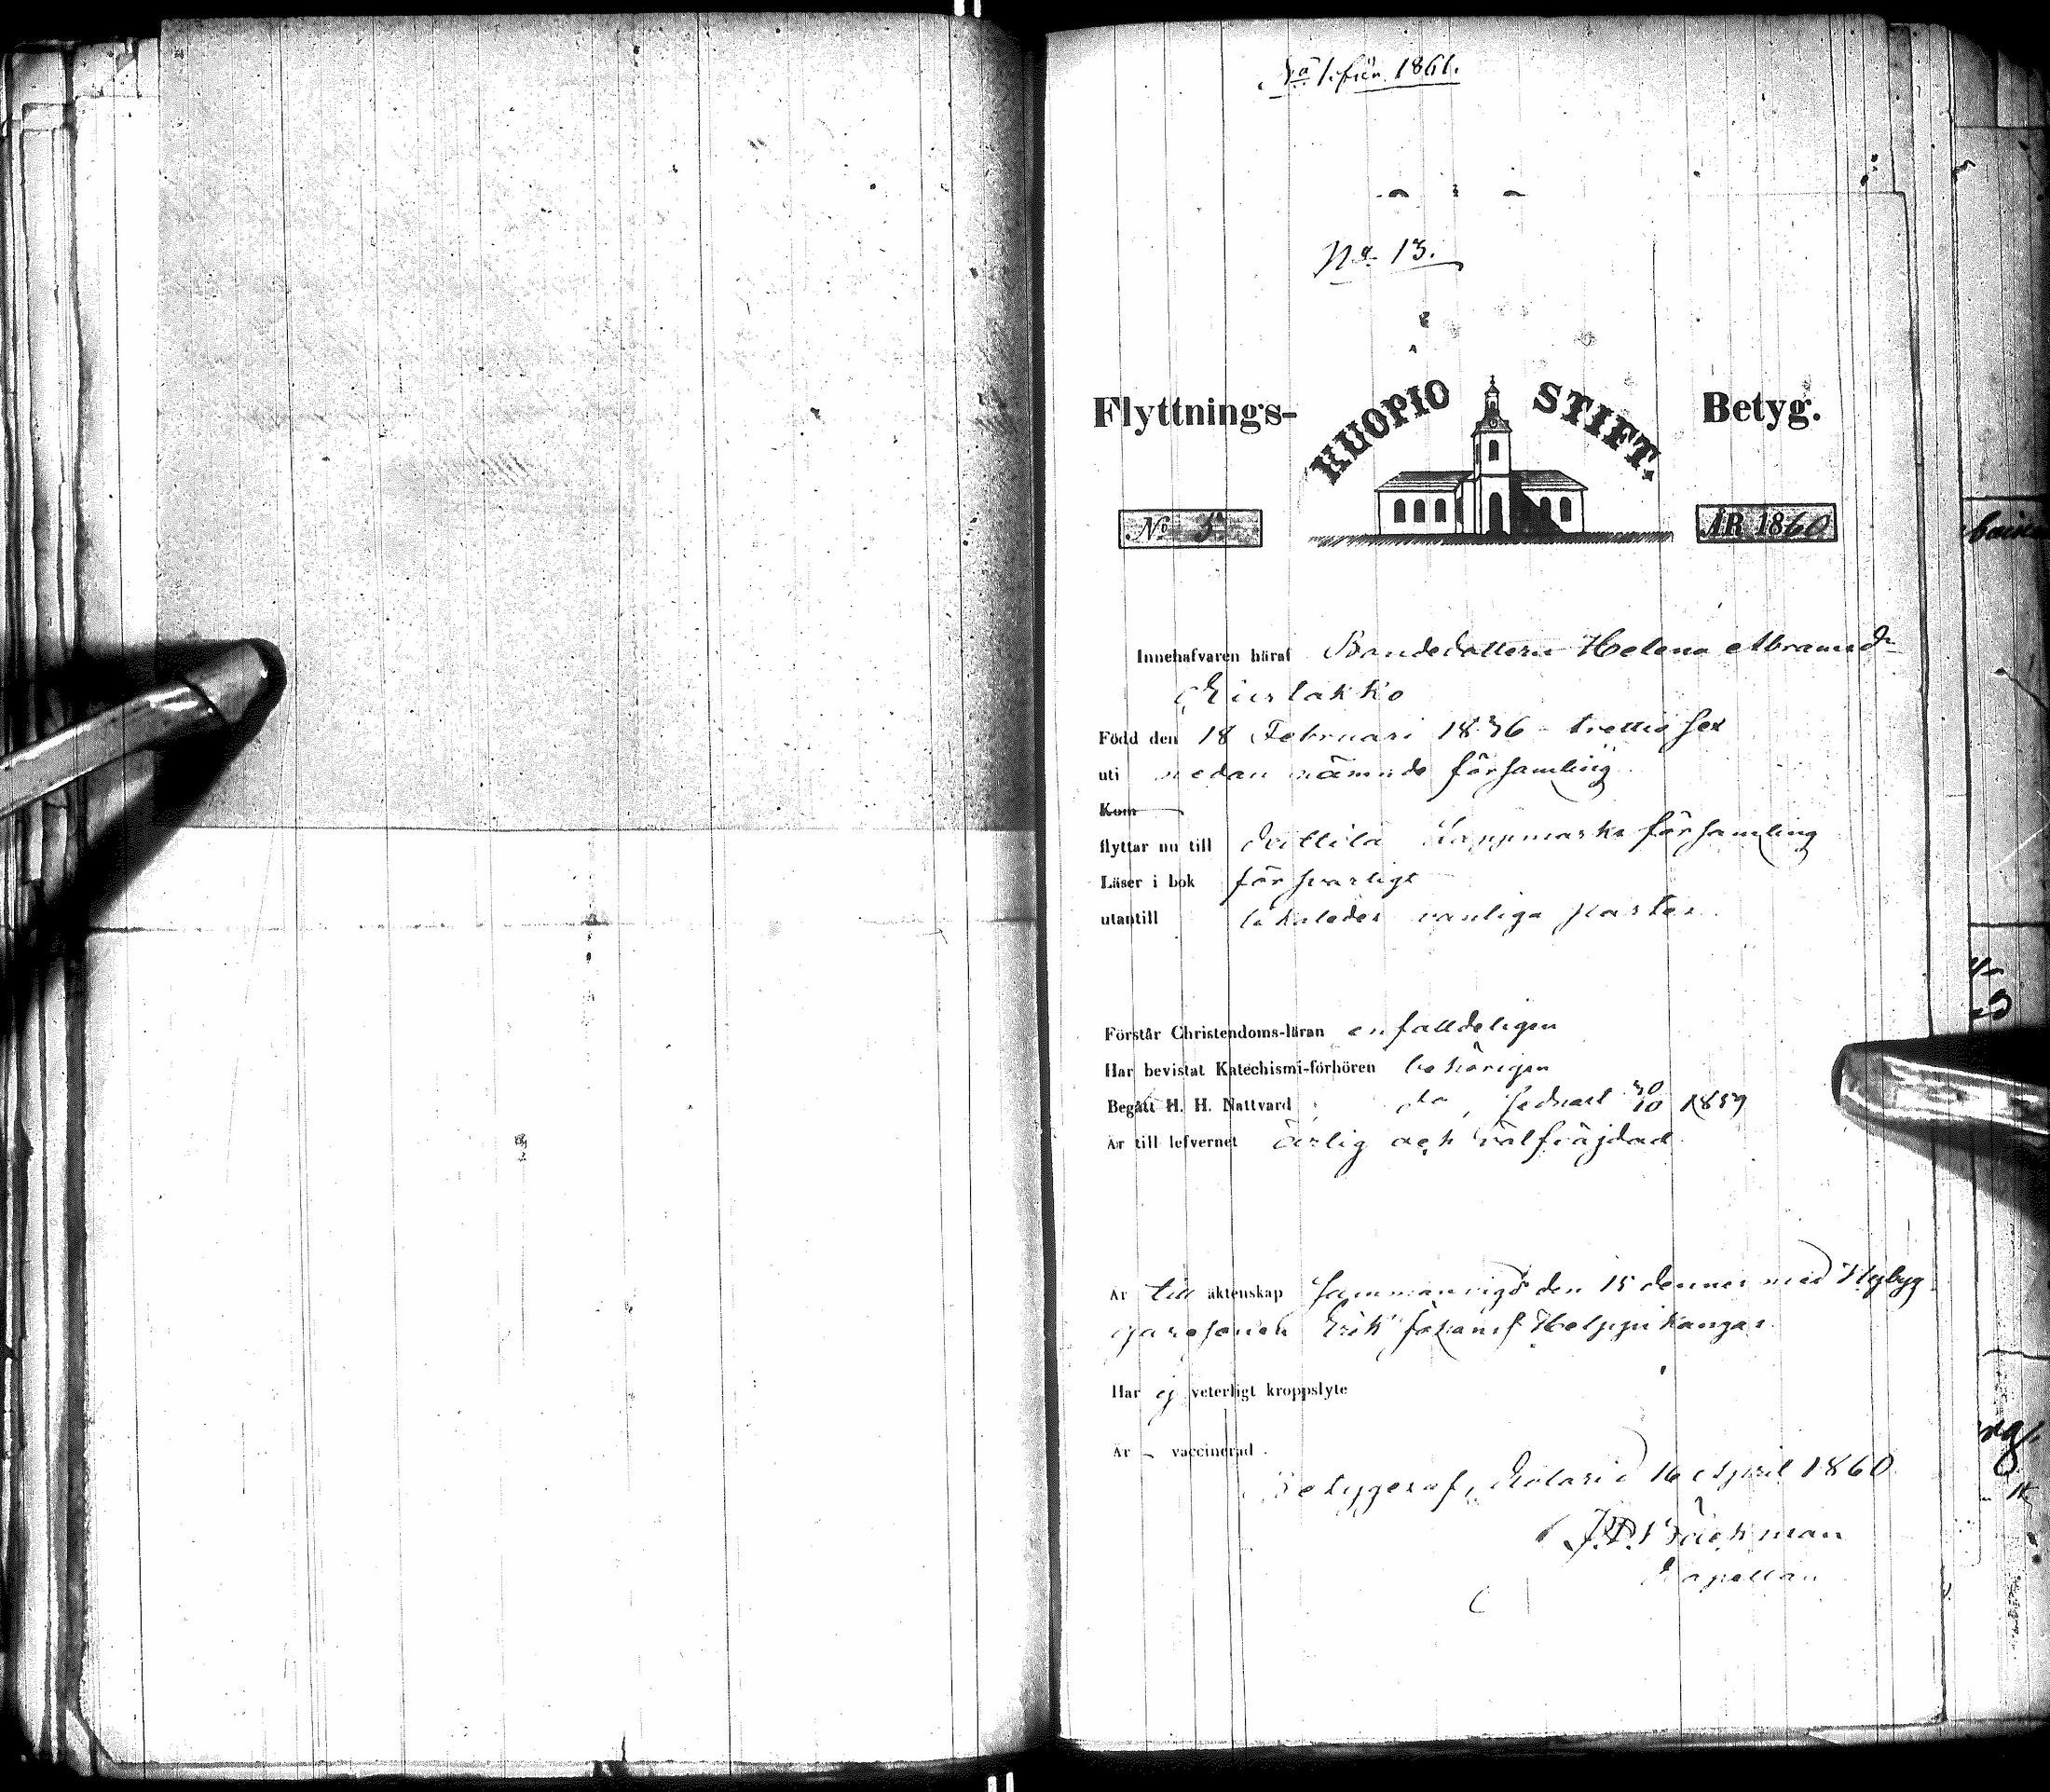 No 1. för 1861.
No 13.
Flyttnings- KUOPIO STIFT. Betyg.
No 5. ÅR 1860
Innehafvaren häraf Bondedottern Helena Abramsdr
Kiurlakko
Född den 18 Februari 1836 trettio sex
uti nedan nämnde församling
Kom
flyttar nu till Kittilä Lappmarks församling
Läser i bok försvarligt
utantill likaledes vanliga stycken
Förstår Christendoms-läran enfalldeligen
Har bevistat Katechismi-förhören behörigen
Begått H. H. Nattvard do, sednast 30/10 1859
Är till lefvernet ärlig och välfräjdad
Är till äktenskap sammanvigd den 15 dennes med Nybyg
garesonen Erik Johansf Helppikangas
Har ej veterligt kroppslyte
Är – vaccinerad
Betygeraf, Kolari d 16 April 1860
J. Bäckman
Kapellan